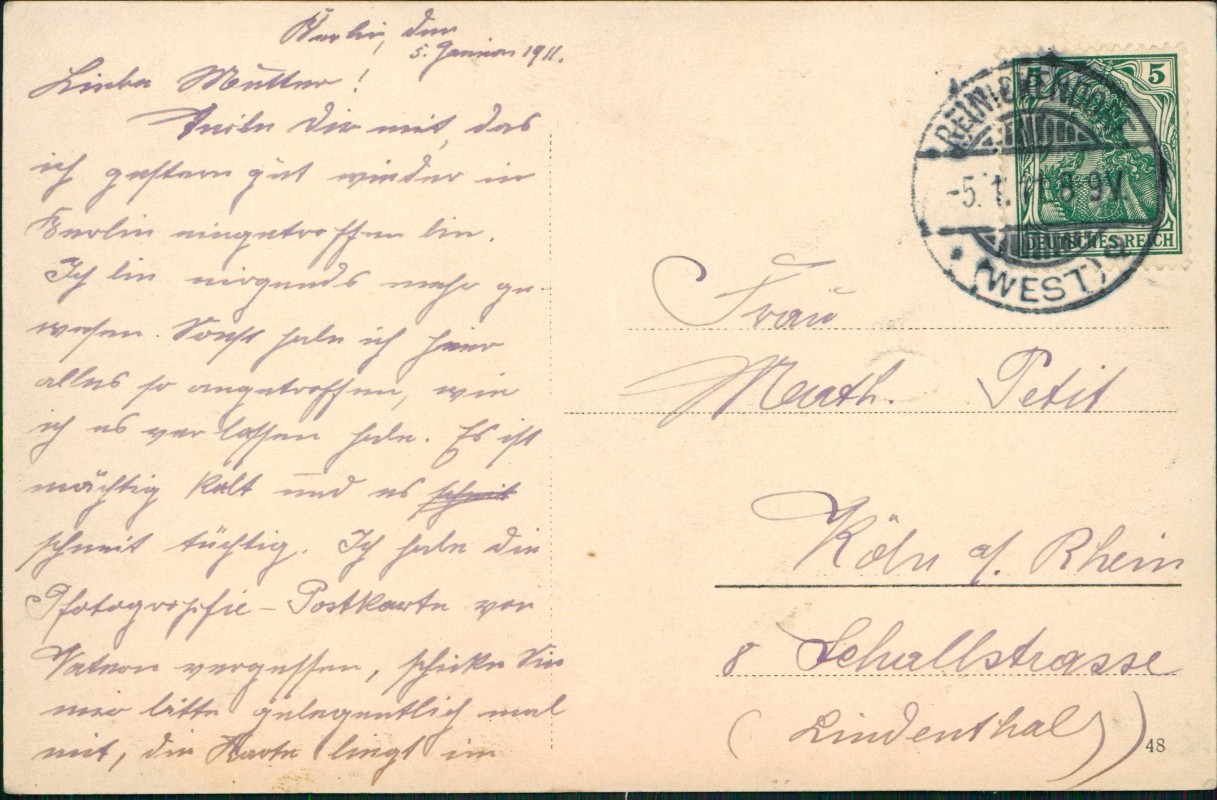 Berlin, den
5. Januar 1911.
Liebe Mutter!
Teile Dir mit, das
ich gestern gut wieder in
Berlin eingetroffen bin.
Ich bin nirgends mehr ge-
wesen. Sonst habe ich hier
alles so angetroffen, wie
ich es verlassen habe. Es ist
mächtig kalt und es schneit
schneit tüchtig. Ich habe die
Photographie-Postkarte von
Vatern vergessen, schicke Sie
mir bitte gelegentlich mal
mit, die Karte liegt im
REINICKENDORF
-5.1.11.8-9V.
(WEST) a
5 5
DEUTSCHES REICH
Frau
Math. Petit
Köln a/. Rhein
8 Schallstrasse
(Lindenthal)
48